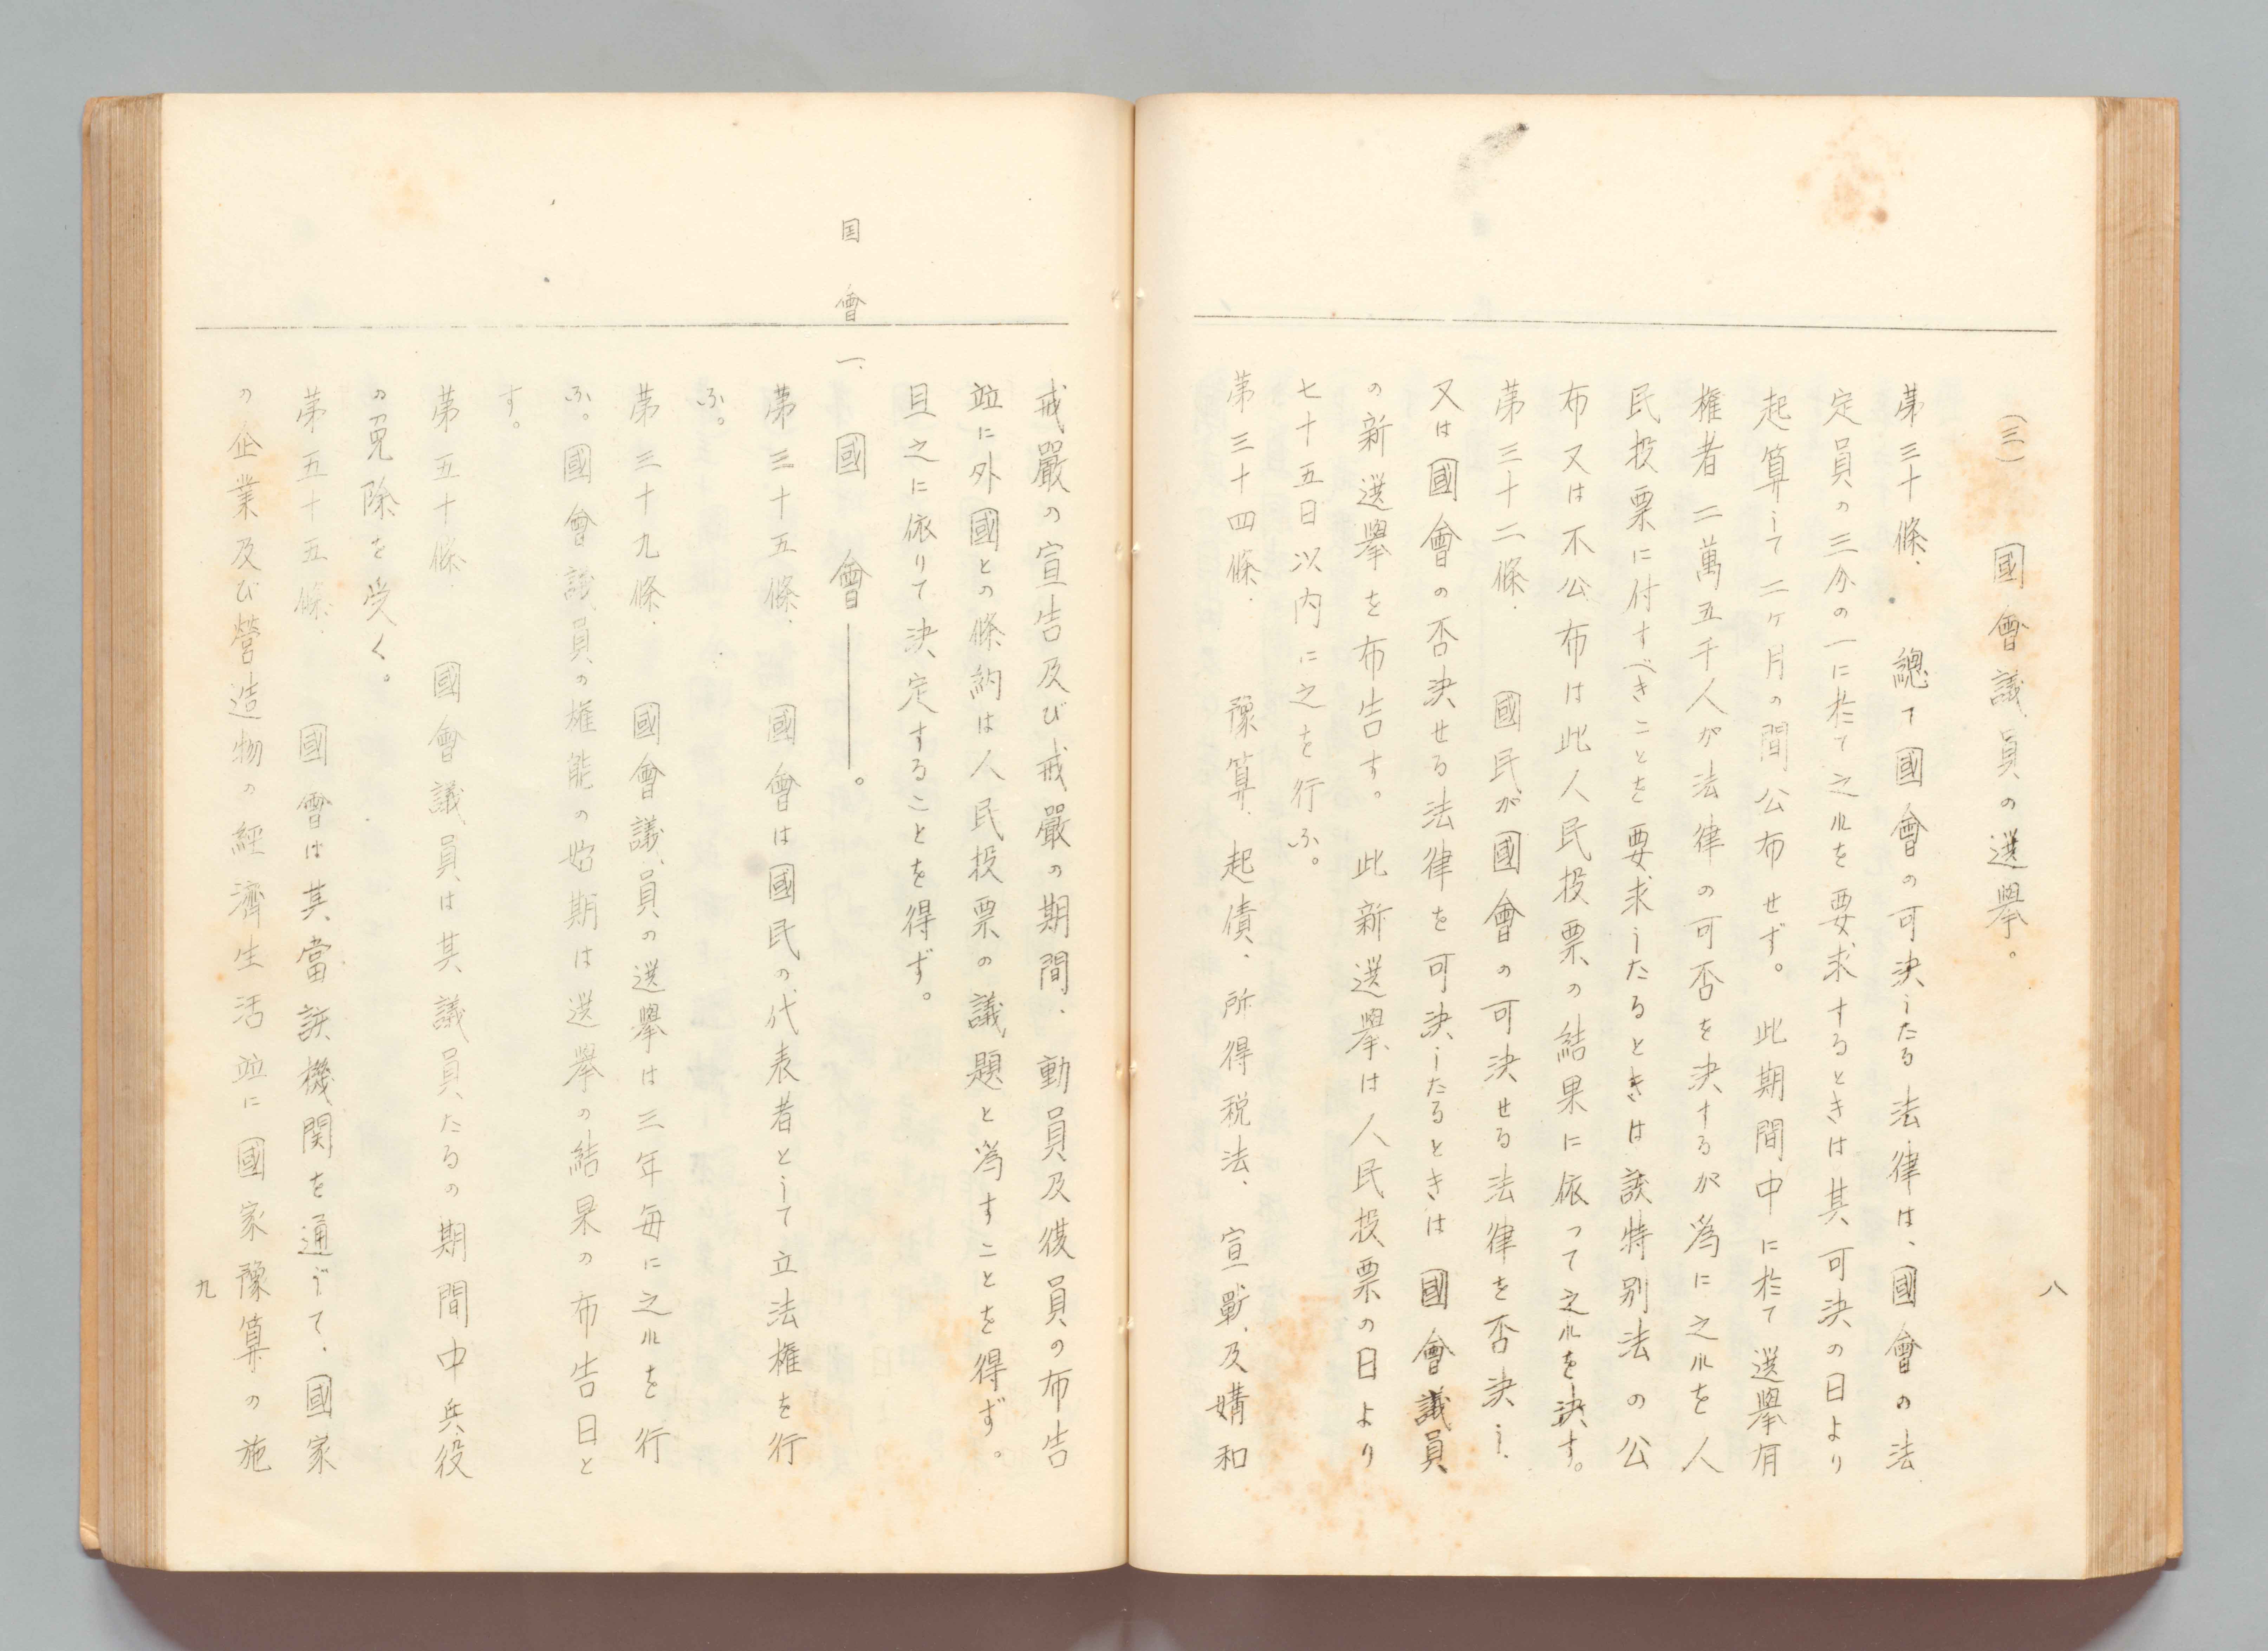 八
(三) 國會議員の選擧。
第三十條. 總て國會の可決したる法律は、國會の法
定員の三分の一に於て之れを要求するときは其可決の日より
起算して二ケ月の間公布せず。此期間中に於て選擧有
権者二萬五千人が法律の可否を決するが爲に之れを人
民投票に付すべきことを要求したるときは該特別法の公
布又は不公布は此人民投票の結果に依って之れを決す。
第三十二條. 國民が國會の可決せる法律を否決し.
又は國會の否決せる法律を可決したるときは國會議員
の新選擧を布告す。此新選擧は人民投票の日より
七十五日以内に之を行ふ。
第三十四條. 豫算、起債、所得税法、宣戰及媾和
戒嚴の宣告及び戒嚴の期間、動員及復員の布告
竝に外國との條約は人民投票の議題と爲すことを得ず。
且之に依りて決定することを得ず。
国會
一. 國會――。
第三十五條. 國會は國民の代表者として立法権を行
ふ。
第三十九條. 國會議員の選擧は三年毎に之れを行
ふ。國會議員の権能の始期は選擧の結果の布告日と
す。
第五十條. 國會議員は其議員たるの期間中兵役
の免除を受く。
第五十五條. 國會は其當該機関を通じて、國家
の企業及び營造物の經濟生活竝に國家豫算の施
九